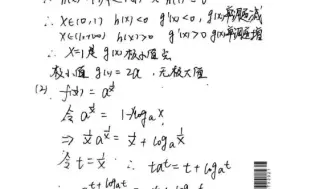 ∴ x∈(0,1) h(x)<0 g'(x)<0, g(x)单调递减
x∈(1,+∞) h(x)>0 g'(x)>0 g(x)单调递增
∴ x=1是 g(x) 极小值点
极小值 g(1)=2a, 无极大值
(2). f(x)=a^x
令 a^{1/x} = 1-x log_a x
⇒ 1/x a^{1/x} = 1/x + log_a 1/x
令 t=1/x ∴ ta^t = t+log_a t